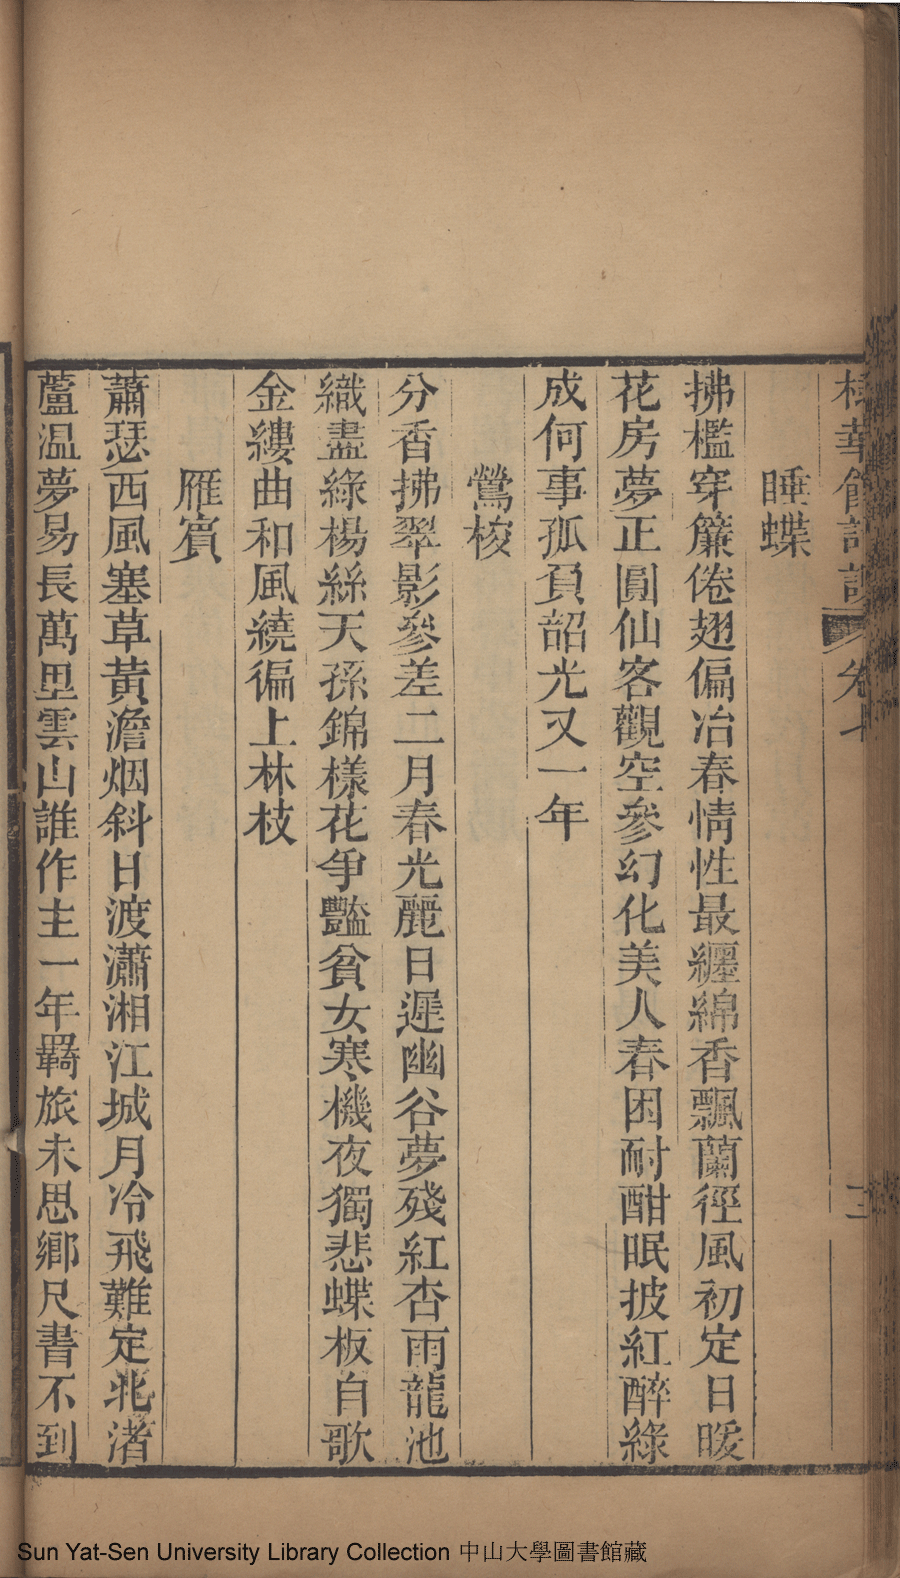 華館詩
卷七
睡蝶
拂檻穿簾倦翅偏冶春情性最纏綿香飄蘭徑風初定日暖
花房夢正圓仙客觀空參幻化美人春困耐酣眠披紅醉綠
成何事孤負韶光又一年
鶯梭
分香拂翠影參差二月春光麗日遲幽谷夢殘紅杏雨龍池
織盡綠楊絲天孫錦樣花爭豔貧女寒機夜獨悲蝶板自歌
金縷曲和風繞徧上林枝
雁賓
蕭瑟西風塞草黃澹烟斜日渡瀟湘江城月冷飛難定北渚
蘆温夢易長萬里雲山誰作主一年羇旅未思鄉尺書不到
Sun Yat-Sen University Library Collection 中山大學圖書館藏